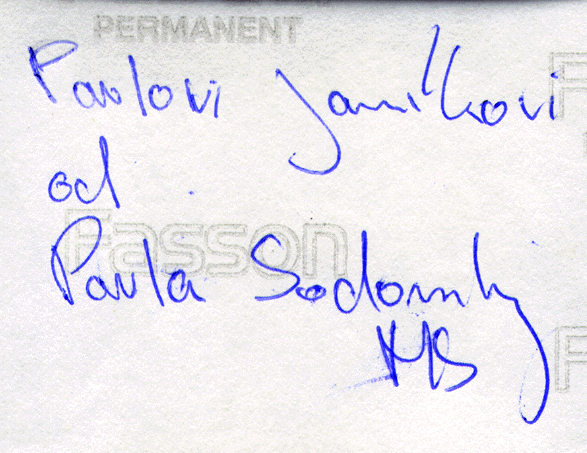 PERMANENT
Pavlovi Janíkovi
od
Fasson
Pavla Sodomky